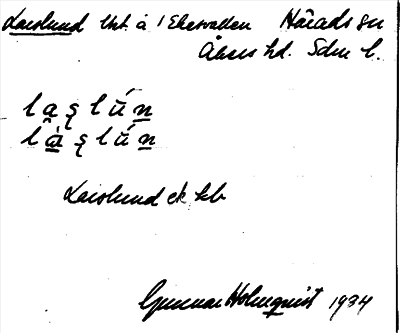 Larslund lht. å 1 Ekevallen Härads sn
Åkers hd. Sdm l.
l a ş l ú n
l à ş l ú n
Larslund ek kb
Gunnar Holmquist 1934